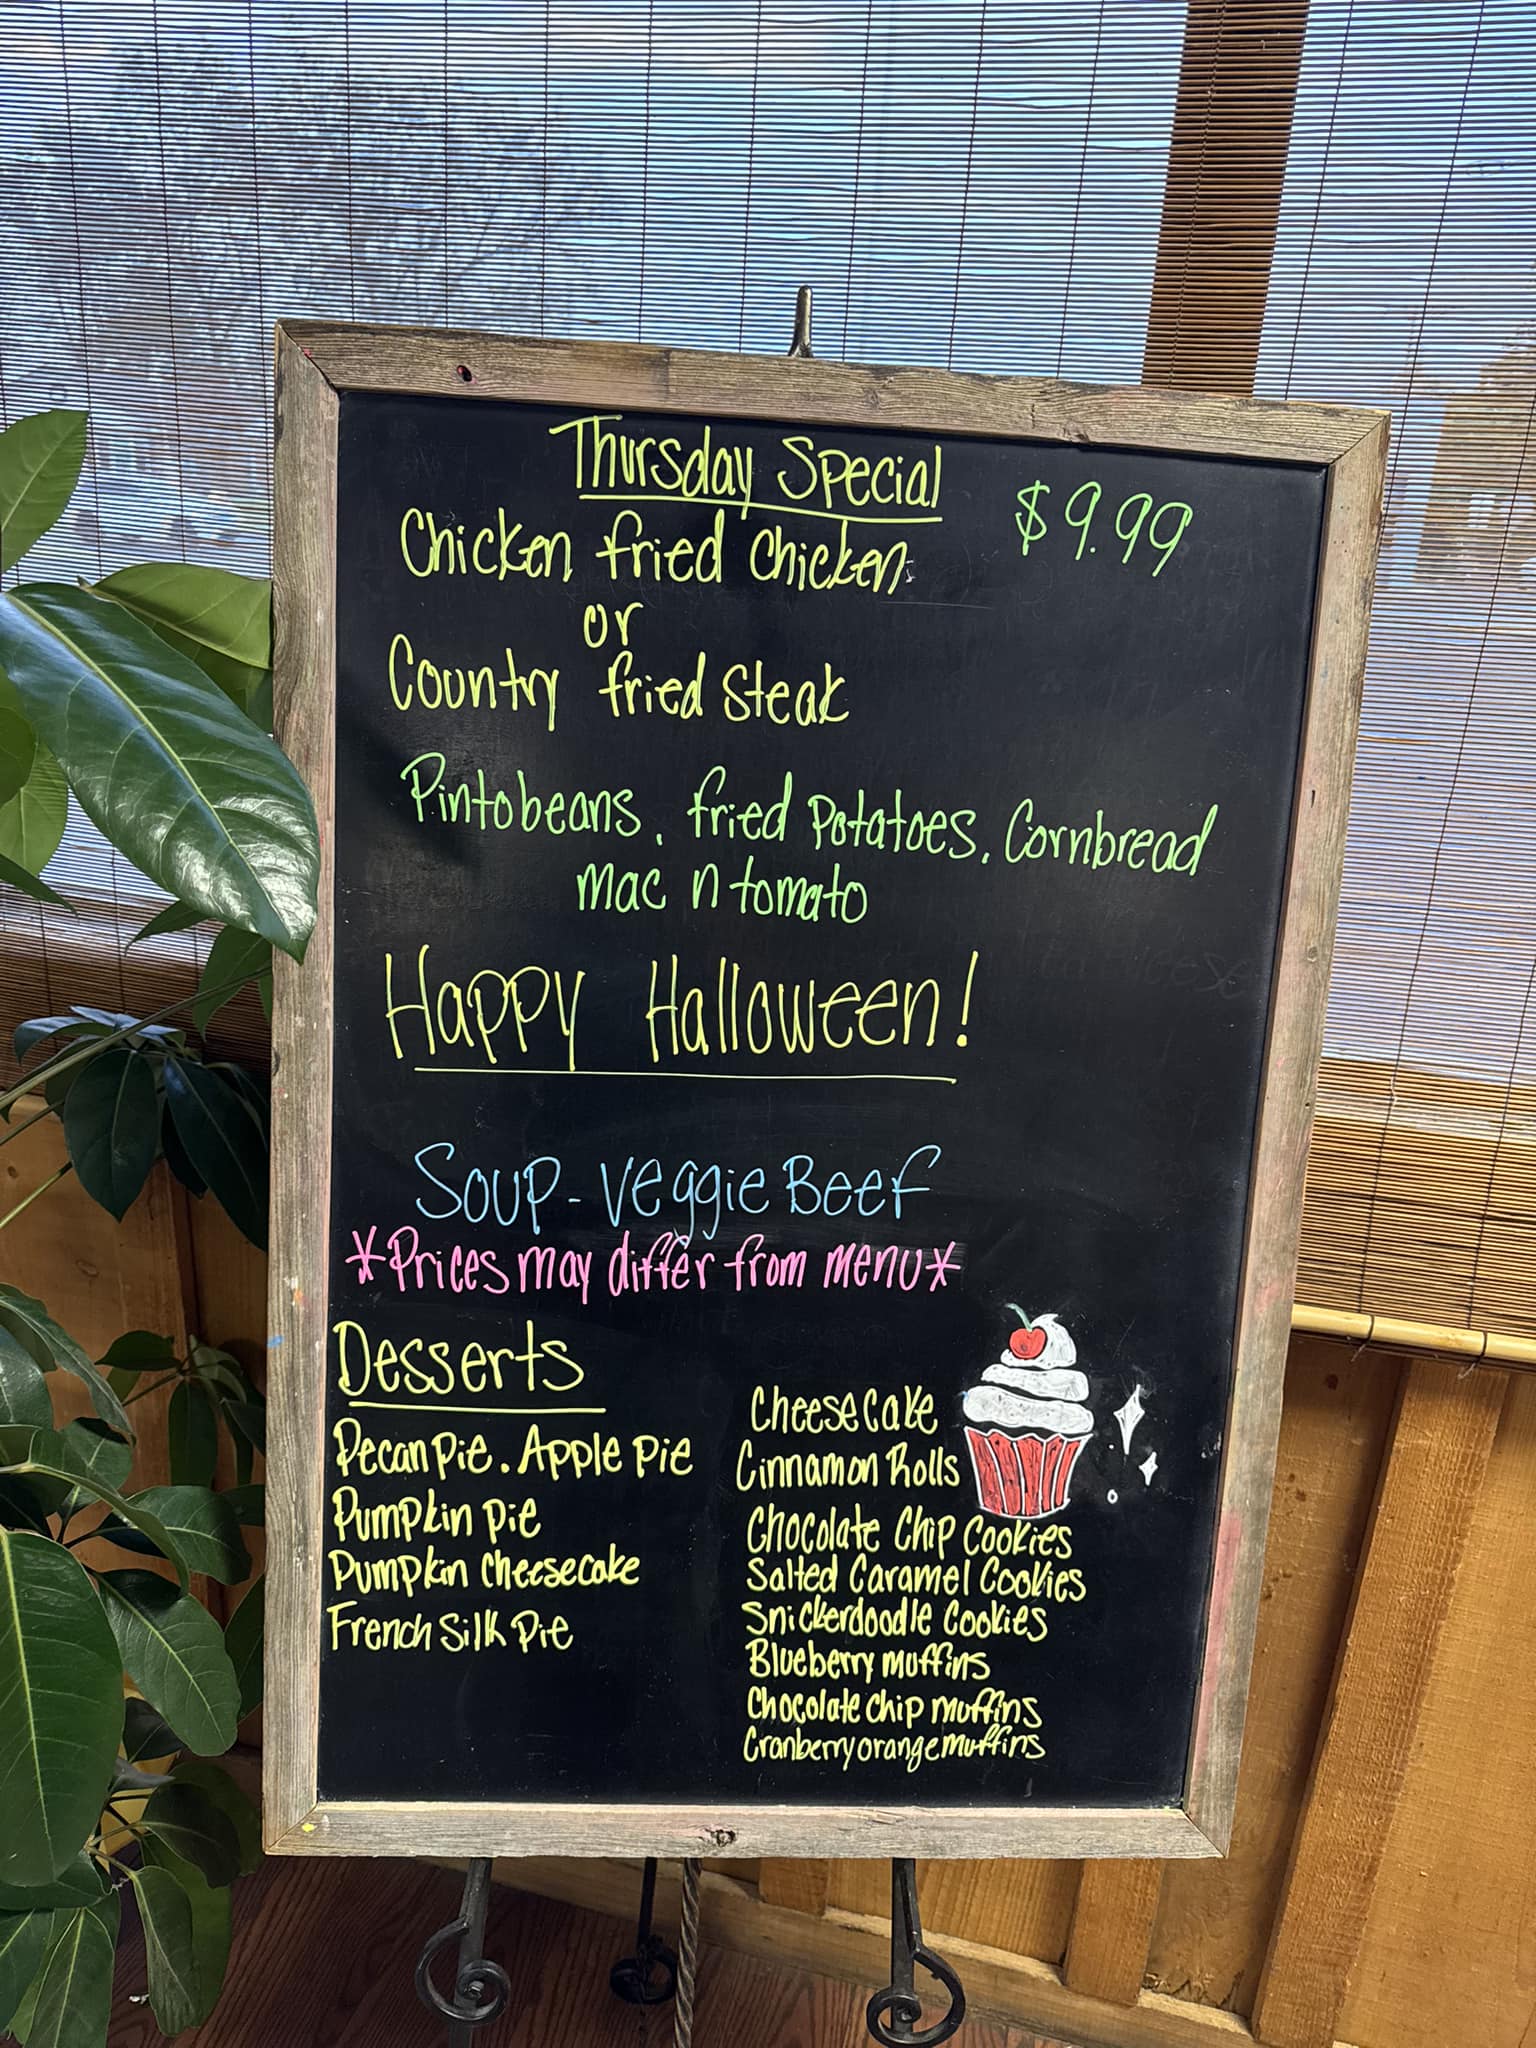 Thursday Special
$9.99
Chicken fried chicken
or
Country fried steak
Pintobeans, fried potatoes, Cornbread
mac n tomato
Happy Halloween!
Soup - Veggie Beef
*Prices may differ from menu*
Desserts
Pecan pie, Apple pie
Pumpkin pie
Pumpkin cheesecake
French Silk pie
Cheesecake
Cinnamon Rolls
Chocolate Chip Cookies
Salted Caramel Cookies
Snickerdoodle Cookies
Blueberry muffins
Chocolate chip muffins
Cranberry orange muffins